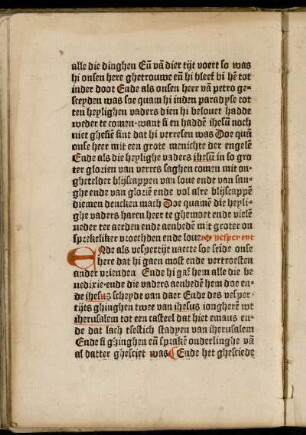 alle die dinghen Eñ vā diet tijt voert so was
hi onsen here ghetrouwe eñ hi bleef bi hē tot
inder doot Ende als onsen heer vā petro ge-
scheyden was soe quam hi inden paradyse tot
ten heylighen vaders dien hi beloeut hadde
weder te comen want si en haddē ihesū noch
niet ghesiē sint dat hi verresen was Doe quā
onse heer mit een grote menichte der engelē
Ende als die heylighe vaders ihesū in so gro
ter glorien van verres saghen comen mit on-
ghetelder blijscappen van loue ende van san-
ghe ende van gloriē ende vol alre blijscappē
diemen dencken mach Doe quamē die heyli-
ghe vaders haren heer te ghemoet ende vielē
neder ter aerden ende aenbedē mit groter on
sprekeliker vroechden ende loue vesper tyt
Ende als vespertijt naerre soe seide onse
here dat hi gaen most ende vertroesten
ander vrienden Ende hi gaf hem alle die be
nedixie ende die vaders aenbedē hem doe en-
de ihesus scheyde van daer Ende des vesper-
tijts ghinghen twee van ihesus iongherē wt
iherusalem tot een casteel dat hiet emaus en-
de dat lach tsestich stadyen van iherusalem
Ende si ghinghen eñ sprakē onderlinghe vā
al datter ghesciet was Ende het ghesciede